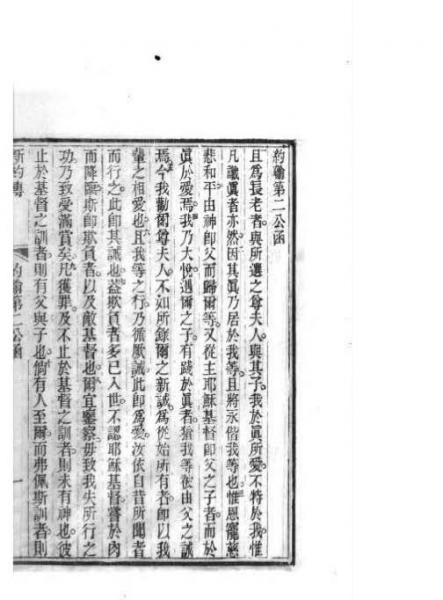 約翰第二公函
且爲長老者。與所選之尊夫人。與其子。我於眞所愛。不特於我。惟
凡識眞者亦然。因其眞乃居於我等。且將永偕我等也。惟恩寵慈
悲和平。由神卽父而歸爾等。又從主耶穌基督卽父之子者。而於
眞於愛焉。我乃大悅。遇爾之子。有踐於眞者。猶我等從由父之誡
焉。今我勸爾尊夫人。不如所錄爾之新誡。爲從始所有者。卽以我
輩之相愛也。且我等之行。乃循厥誡。此卽爲愛。汝依自昔所聞者
而行之。此卽其誡也。蓋欺負者多已入世。不認耶穌基督嘗於肉
而降臨。斯卽欺負者。以及敵基督也。爾宜鑒察。毋致我失所行之
功。乃致受滿賞矣。凡獲罪。及不止於基督之訓者。則未有神也。彼
止於基督之訓者。則有父與子也。倘有人至爾。而弗佩斯訓者。則
新約傳 約翰第二公函 一